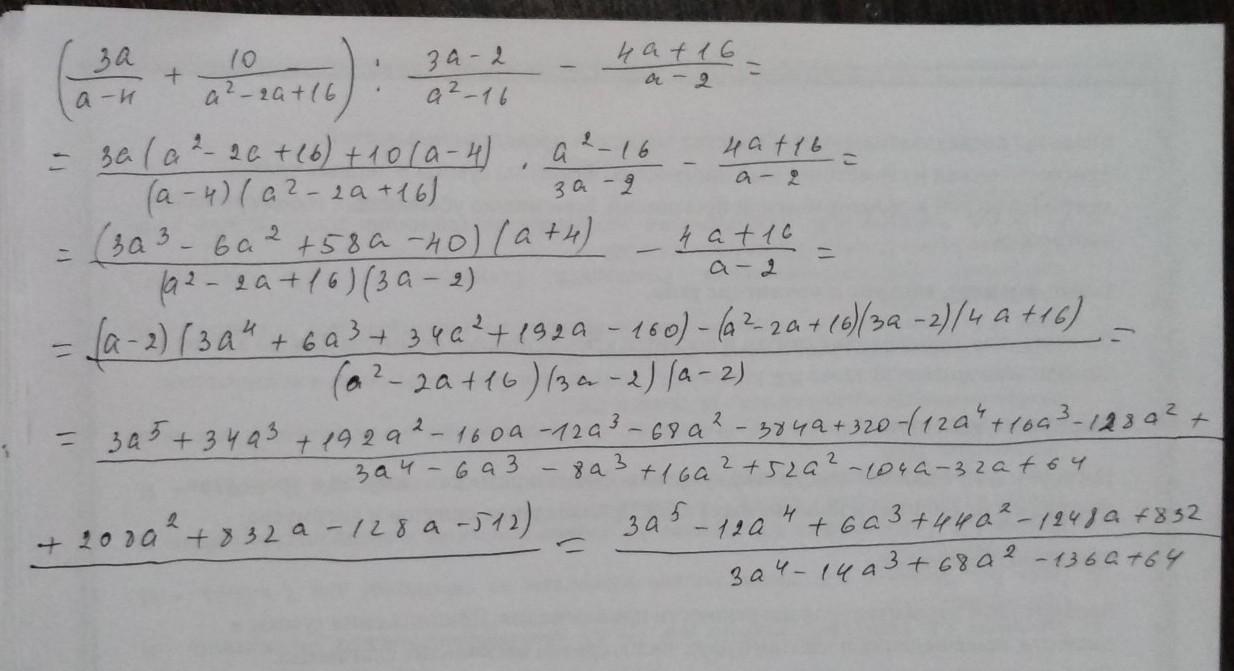 (3a/(a-4) + 10/(a²-2a+16)) : (3a-2)/(a²-16) - (4a+16)/(a-2) =
= (3a(a²-2a+16)+10(a-4))/((a-4)(a²-2a+16)) · (a²-16)/(3a-2) - (4a+16)/(a-2) =
= ((3a³-6a²+58a-40)(a+4))/((a²-2a+16)(3a-2)) - (4a+16)/(a-2) =
= ((a-2)(3a⁴+6a³+34a²+192a-160)-(a²-2a+16)(3a-2)(4a+16))/((a²-2a+16)(3a-2)(a-2)) =
= (3a⁵+34a³+192a²-160a-12a³-68a²-384a+320-(12a⁴+16a³-128a²+)/(3a⁴-6a³-8a³+16a²+52a²-104a-32a+64)
+208a²+832a-128a-512) = (3a⁵-12a⁴+6a³+44a²-1248a+832)/(3a⁴-14a³+68a²-136a+64)